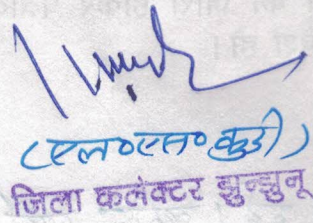 (एल०एस० कुडी)
जिला कलेक्टर झुन्झुनू